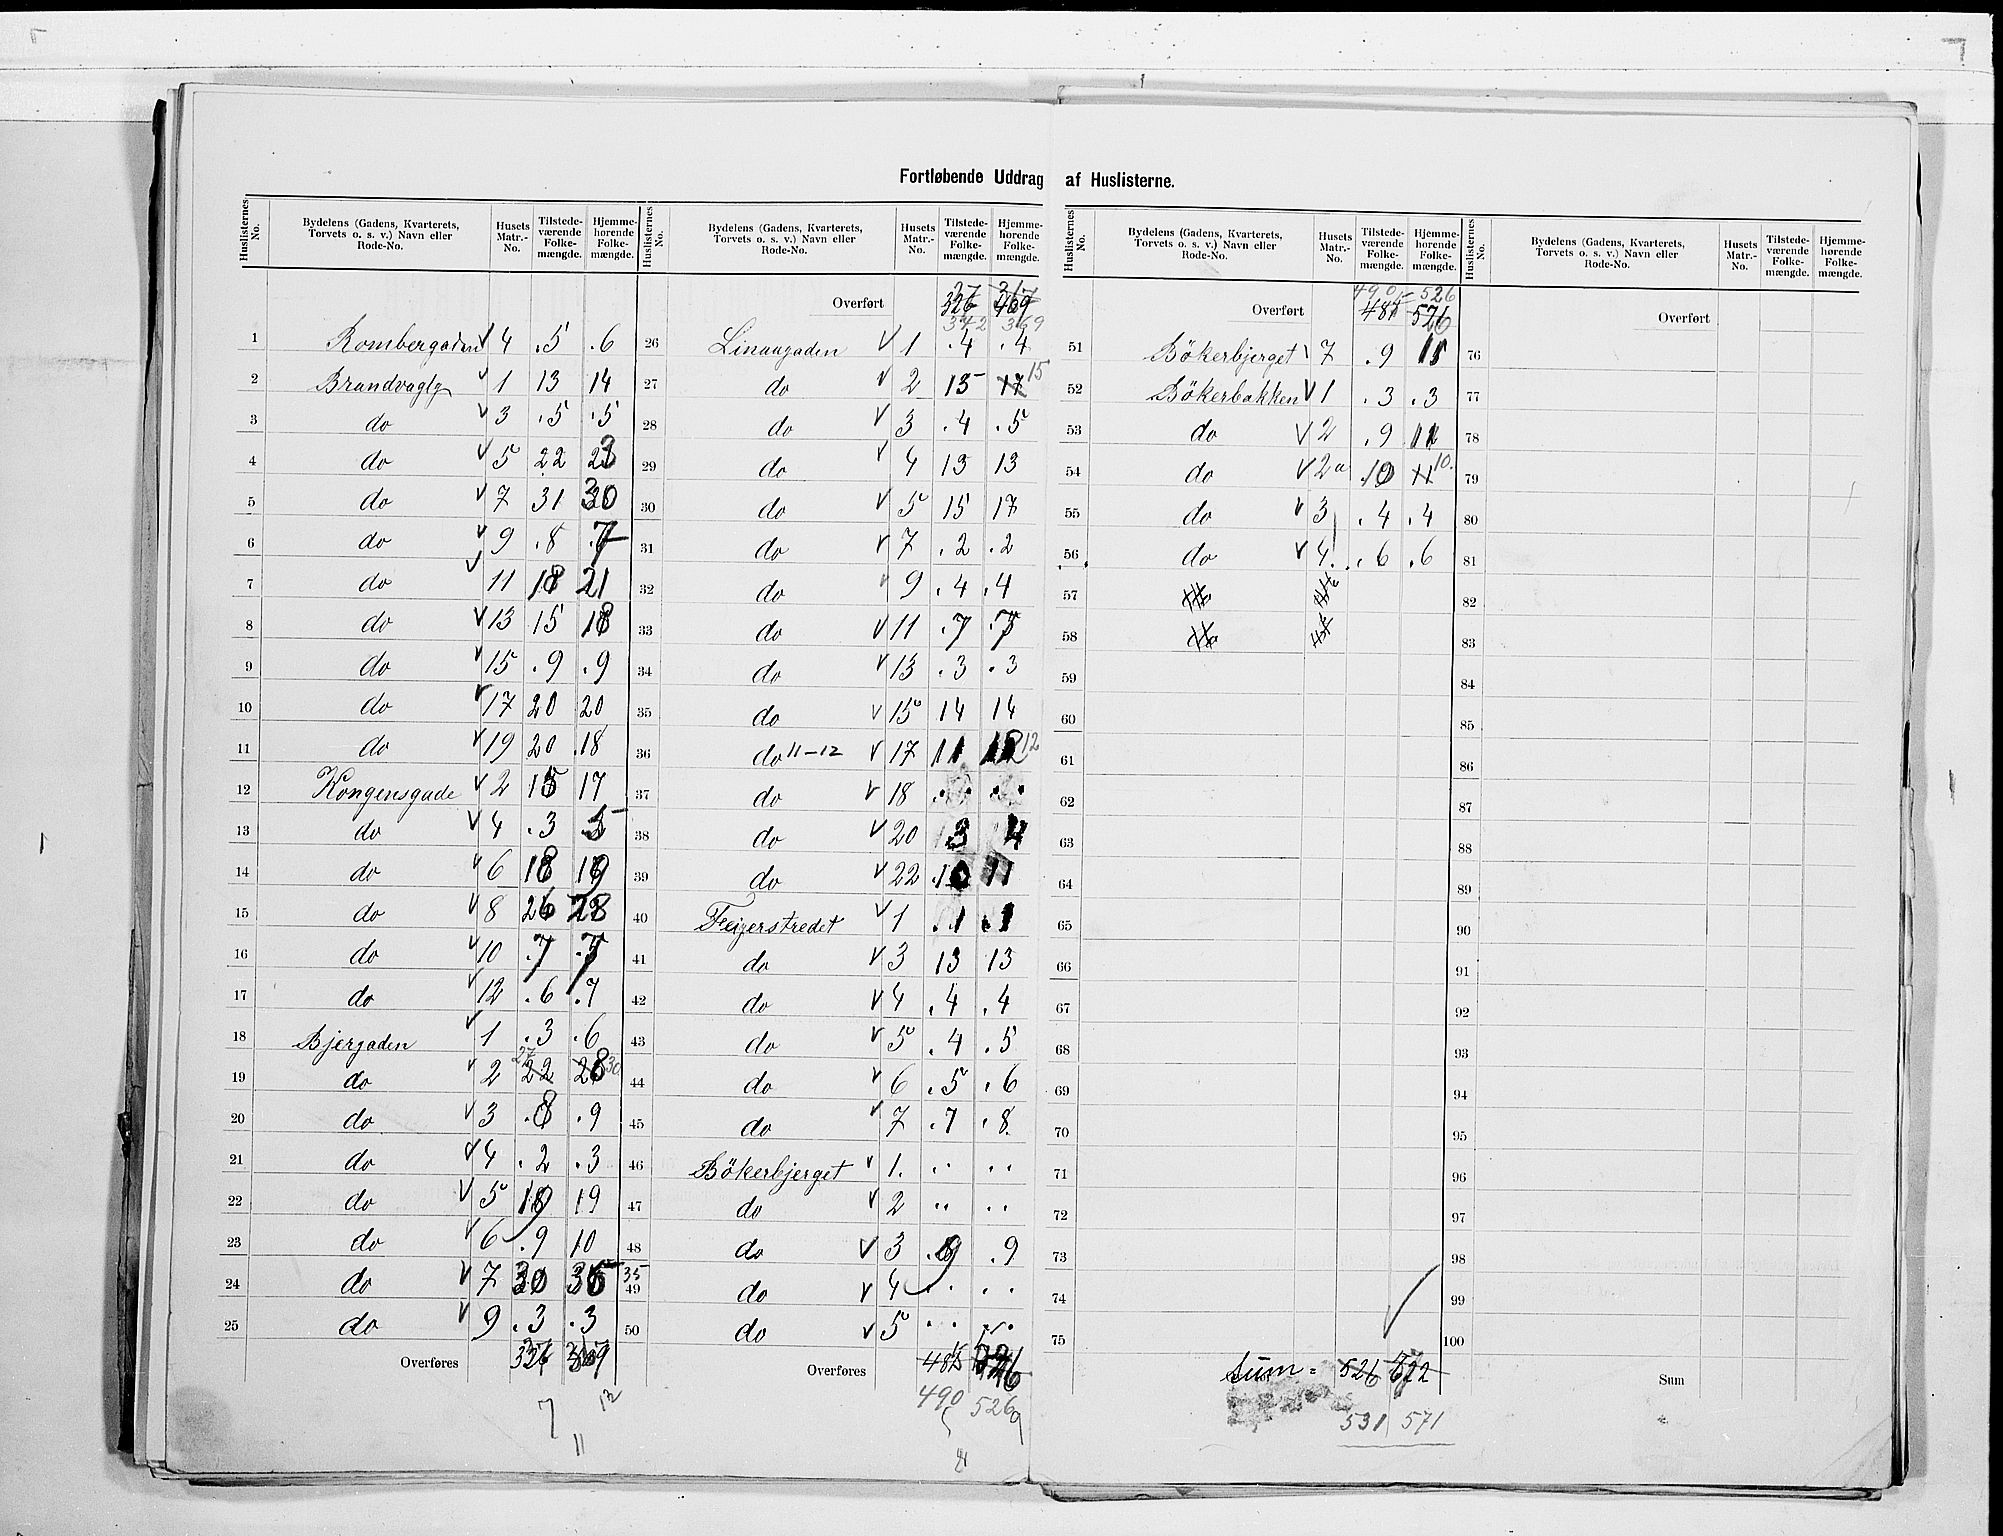 Fortløbende Uddrag af Huslisterne.
Huslisternes No. Bydelens (Gadens, Kvarterets, Torvets o. s. v.) Navn eller Rode-No. Husets Matr.-No. Tilstedeværende Folkemængde. Hjemmehørende Folkemængde.
1 Rombergaden V 4 . 5 . 6
2 Brandvagtg V 1 13 14
3 do V 3 . 5 . 5
4 do V 5 22 23
5 do V 7 31 30
6 do V 9 . 8 . 7
7 do V 11 18 21
8 do V 13 15 18
9 do V 15 . 9 . 9
10 do V 17 20 20
11 do V 19 20 18
12 Kongensgade V 2 15 17
13 do V 4 . 3 5
14 do V 6 18 19
15 do V 8 26 28
16 do V 10 . 7 . 7
17 do V 12 . 6 . 7
18 Bjergaden V 1 . 3 . 6
19 do V 2 22 27 28 30
20 do V 3 . 8 . 9
21 do V 4 . 2 . 3
22 do V 5 19 19
23 do V 6 . 9 10
24 do V 7 30 35 35
25 do V 9 . 3 . 3
Overføres
7 12
11
Huslisternes No. Bydelens (Gadens, Kvarterets, Torvets o. s. v.) Navn eller Rode-No. Husets Matr.-No. Tilstedeværende Folkemængde. Hjemmehørende Folkemængde.
Overført
342 369
26 Linaugaden V 1 . 4 . 4
27 do V 2 15 17 15
28 do V 3 . 4 . 5
29 do V 4 13 13
30 do V 5 15 17
31 do V 7 . 2 . 2
32 do V 9 . 4 . 4
33 do V 11 . 7 . 7
34 do V 13 . 3 . 3
35 do V 15 14 14
36 do 11-12 V 17 11 12
37 do V 18 . . . .
38 do V 20 3 4
39 do V 22 10 11
40 Feijerstredet V 1 . 1 . 1
41 do V 3 13 13
42 do V 4 . 4 . 4
43 do V 5 . 4 . 5
44 do V 6 . 5 . 6
45 do V 7 . 7 . 8
46 Bökerbjerget V 1 . . . .
47 do V 2 . . . .
48 do V 3 . 9 . 9
49 do V 4 . . . .
50 do V 5 . . . .
Overføres 485 526
490 526
Huslisternes No. Bydelens (Gadens, Kvarterets, Torvets o. s. v.) Navn eller Rode-No. Husets Matr.-No. Tilstedeværende Folkemængde. Hjemmehørende Folkemængde.
490 - 526
Overført 485 526
51 Bökerbjerget V 7 . 9 11
52 Bökerbakken V 1 . 3 . 3
53 do V 2 . 9 11
54 do V 2a 10 11 10.
55 do V 3 . 4 . 4
56 do V 4 . 6 . 6
57 do
58 do
59
60
61
62
63
64
65
66
67
68
69
70
71
72
73
74
75
Sum = 526 572
531 571
Huslisternes No. Bydelens (Gadens, Kvarterets, Torvets o. s. v.) Navn eller Rode-No. Husets Matr.-No. Tilstedeværende Folkemængde. Hjemmehørende Folkemængde.
Overført
76
77
78
79
80
81
82
83
84
85
86
87
88
89
90
91
92
93
94
95
96
97
98
99
100
Sum